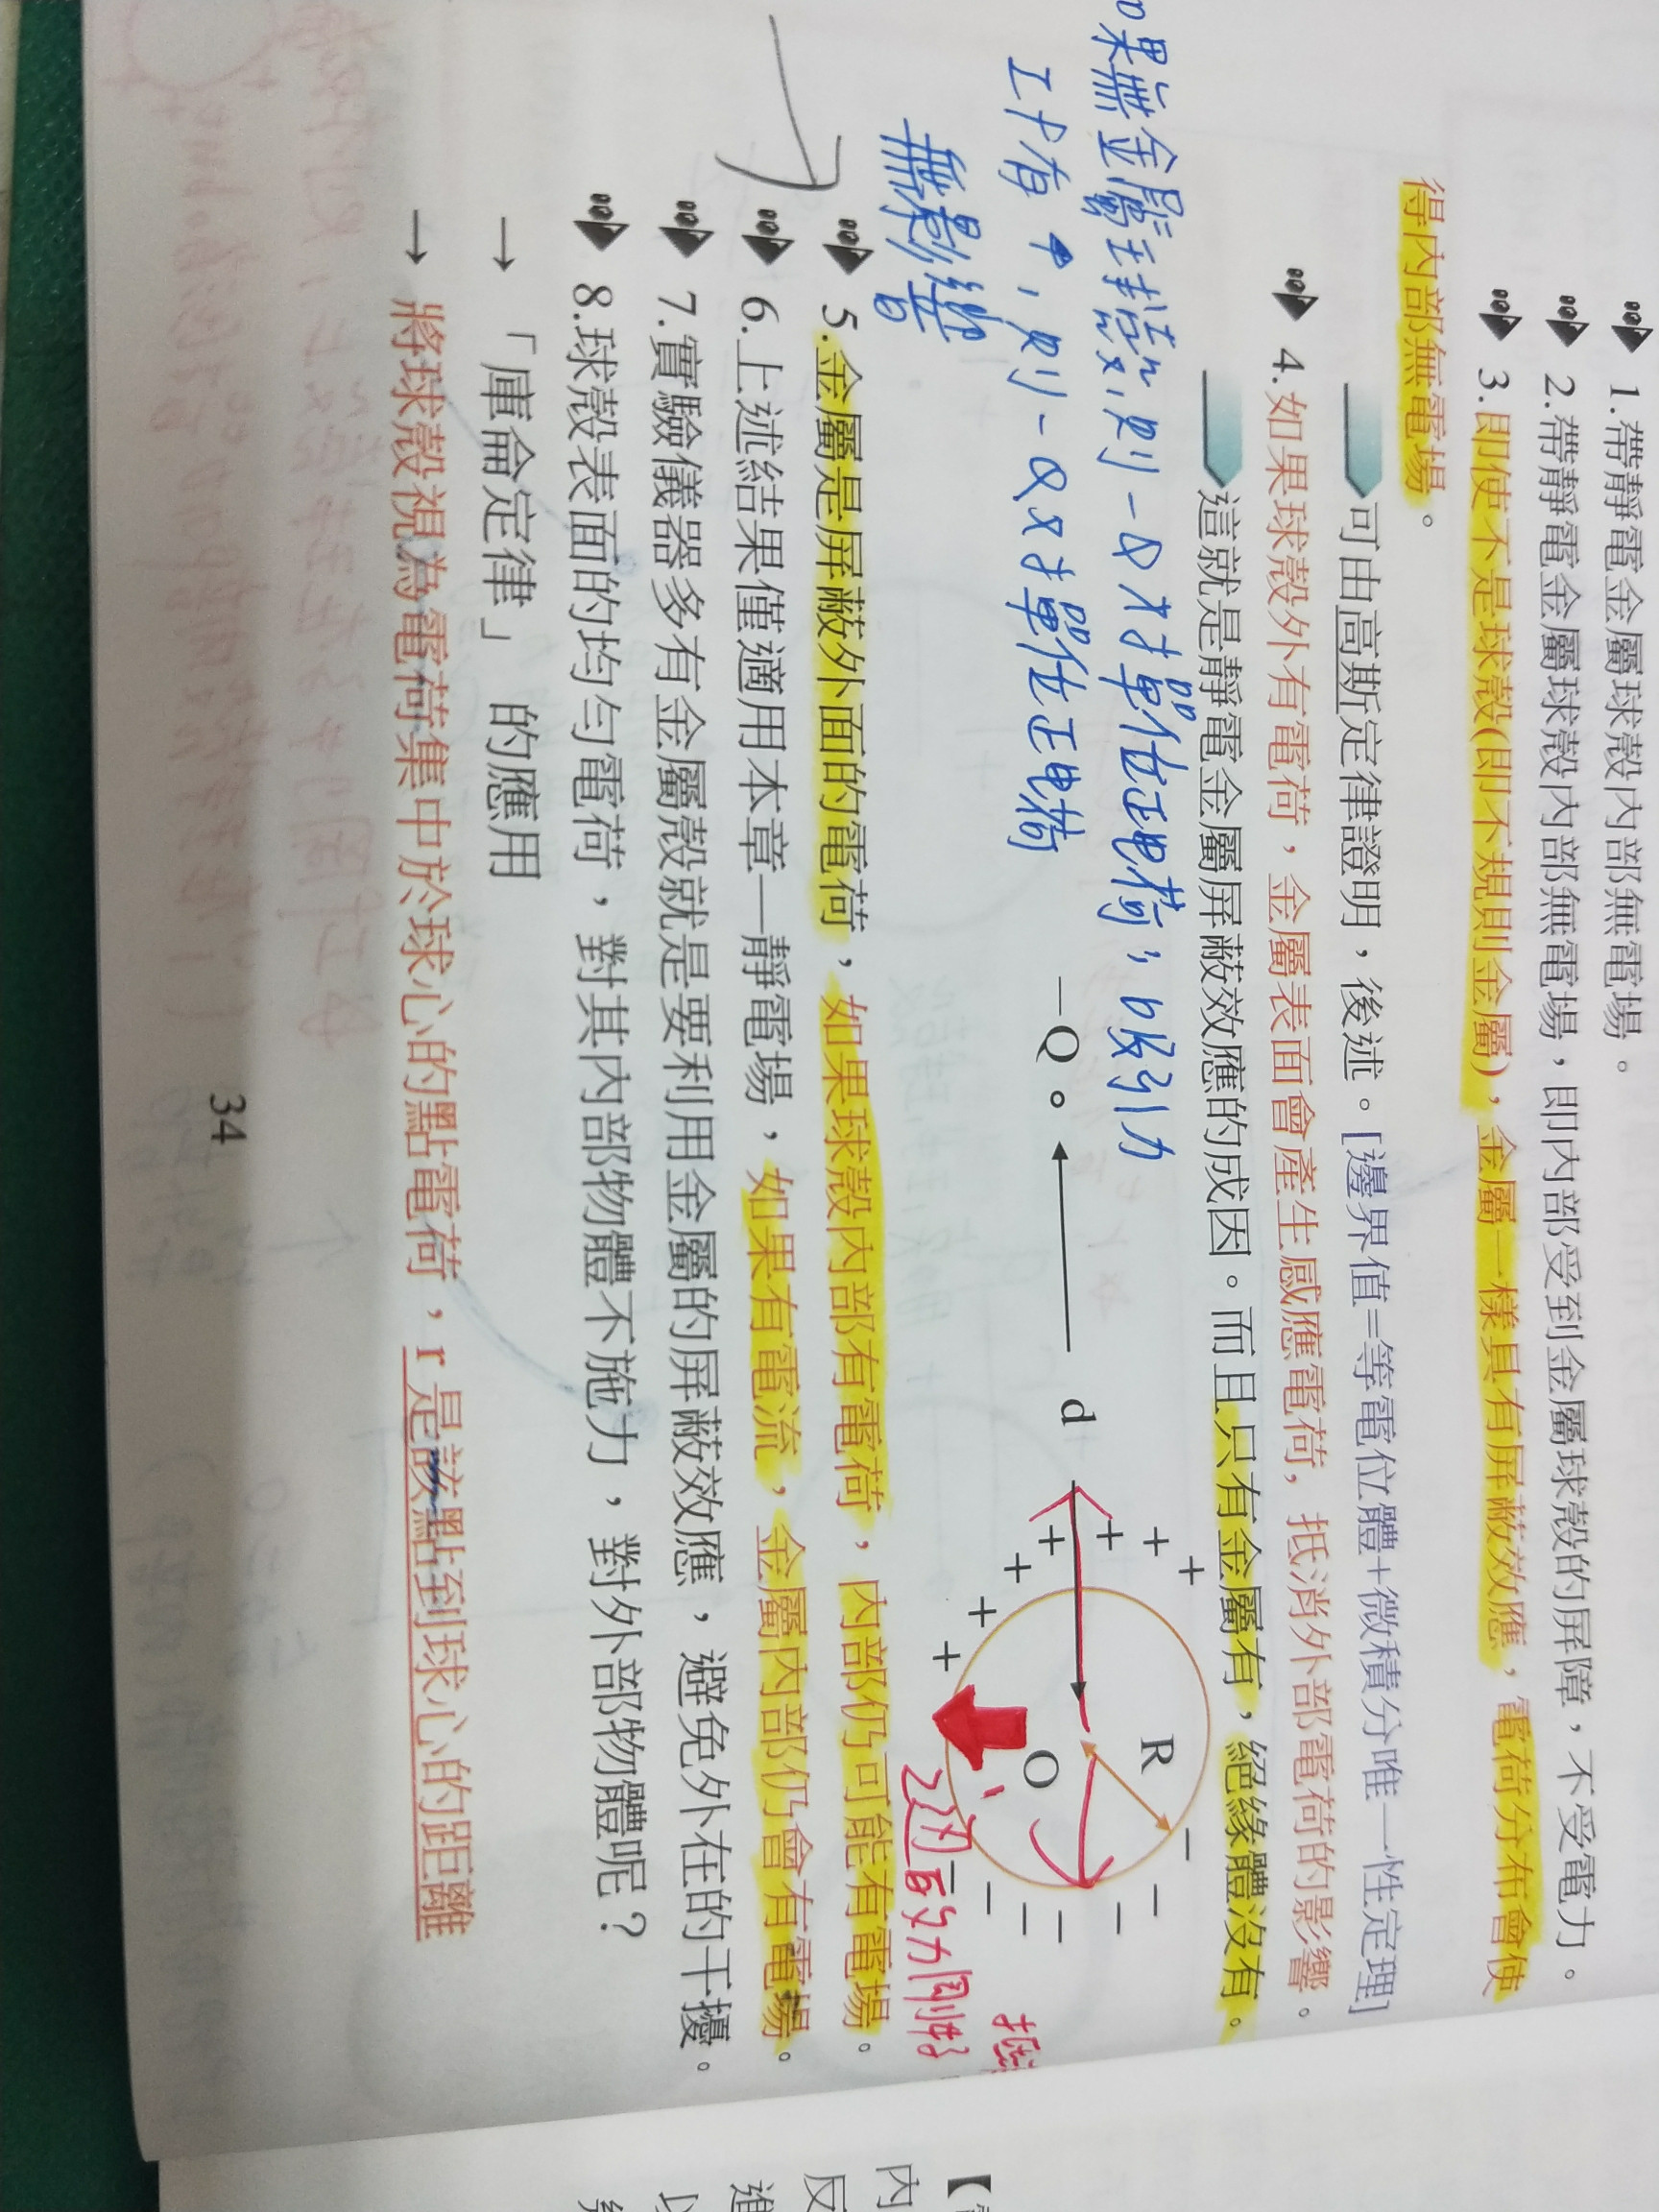 1.帶靜電金屬球殼內部無電場。
2.帶靜電金屬球殼內部無電場，即內部受到金屬球殼的屏障，不受電力。
3.即使不是球殼(即不規則金屬)，金屬一樣具有屏蔽效應，電荷分布會使
得內部無電場。
可由高斯定律證明，後述。[邊界值=等電位體+微積分唯一性定理]
4.如果球殼外有電荷，金屬表面會產生感應電荷，抵消外部電荷的影響。
這就是靜電金屬屏蔽效應的成因。而且只有金屬有，絕緣體沒有。
果無金屬球殼，則-Q對單位正電荷，吸引力
工戶有，則-Q對單位正電荷
無影響
-Q
d
R
O
+ + + + + + +
- - - - - - -
這兩力剛好
抵
5.金屬是屏蔽外面的電荷，如果球殼內部有電荷，內部仍可能有電場。
6.上述結果僅適用本章—靜電場，如果有電流，金屬內部仍會有電場。
7.實驗儀器多有金屬殼就是要利用金屬的屏蔽效應，避免外在的干擾。
8.球殼表面的均勻電荷，對其內部物體不施力，對外部物體呢？
→ 「庫侖定律」的應用
→ 將球殼視為電荷集中於球心的點電荷，r是該點到球心的距離
34
內
反